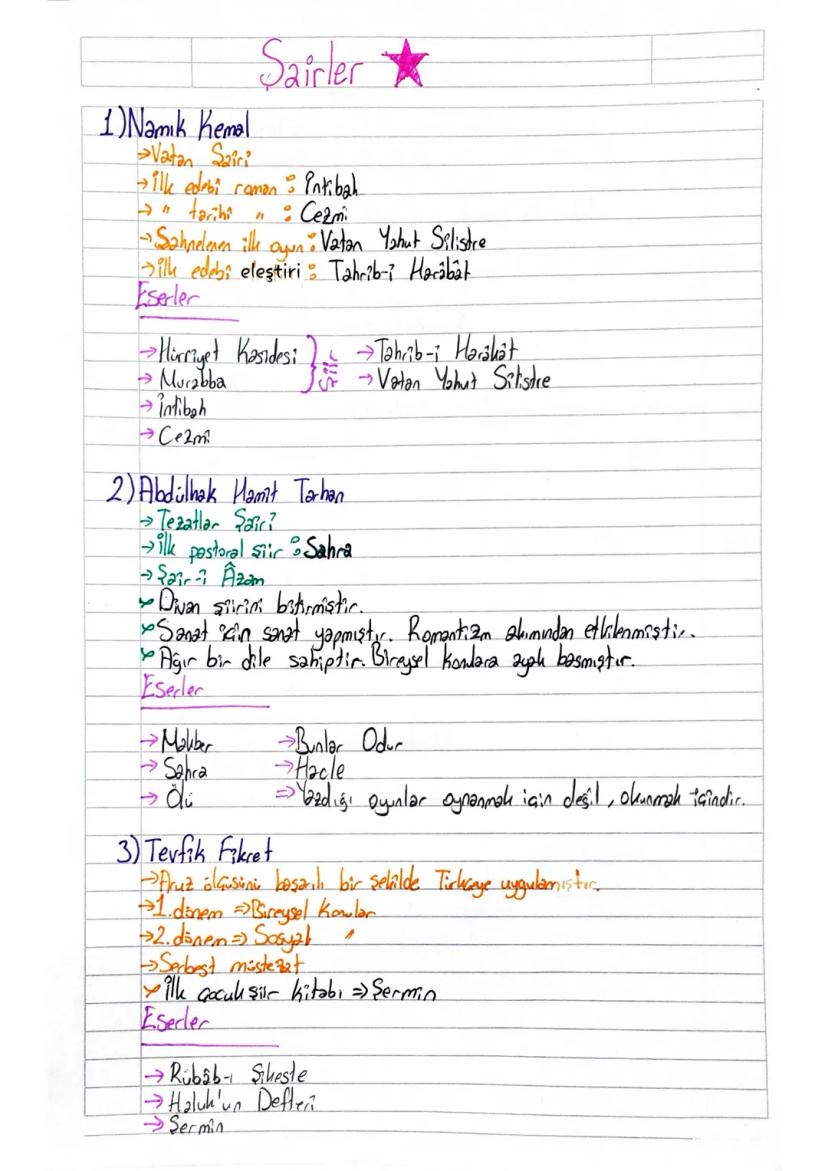 Şairler
1) Namık Kemal
→ Vatan Şairi
→ İlk edebi roman : İntibah
→ " tarihi " : Cezmi
→ Sahnelenen ilk oyun : Vatan Yahut Silistre
→ İlk edebi eleştiri : Tahrib-i Harâbât
Eserler
→ Hürriyet Kasidesi } Şiir → Tahrib-i Harabat
→ Murabba → Vatan Yahut Silistre
→ İntibah
→ Cezmi
2) Abdülhak Hamit Tarhan
→ Tezatlar Şairi
→ İlk pastoral şiir : Sahra
→ Şair-i Âzam
Divan şiirini bitirmiştir.
Sanat için sanat yapmıştır. Romantizm akımından etkilenmiştir.
Ağır bir dile sahiptir. Bireysel konulara ayak basmıştır.
Eserler
→ Makber → Bunlar Odur
→ Sahra → Hacle
→ Ölü ⇒ Yazdığı oyunlar oynanmak için değil, okunmak içindir.
3) Tevfik Fikret
→ Aruz ölçüsünü başarılı bir şekilde Türkçeye uygulamıştır.
→ 1. dönem ⇒ Bireysel Konular
→ 2. dönem ⇒ Sosyal "
→ Serbest müstezat
İlk çocuk şiir kitabı ⇒ Şermin
Eserler
→ Rübâb-ı Şikeste
→ Haluk'un Defteri
→ Şermin